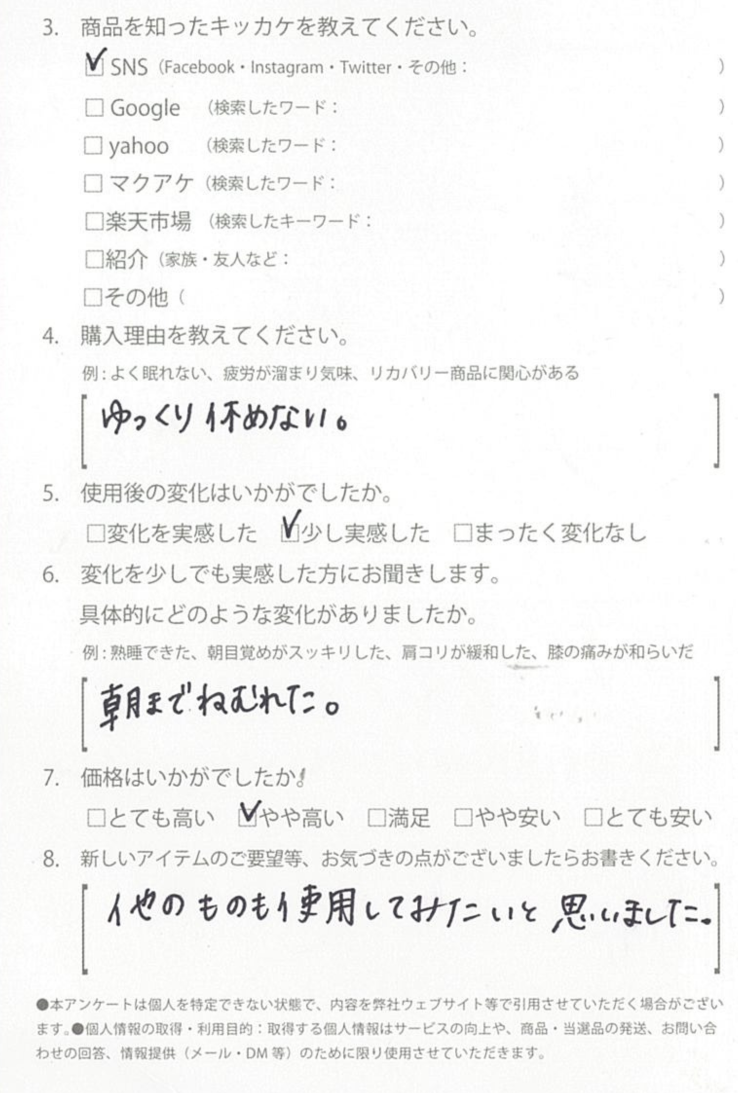 3. 商品を知ったキッカケを教えてください。
☑ SNS（Facebook・Instagram・Twitter・その他： ）
□ Google （検索したワード： ）
□ yahoo （検索したワード： ）
□ マクアケ（検索したワード： ）
□楽天市場（検索したキーワード： ）
□紹介（家族・友人など： ）
□その他（ ）
4. 購入理由を教えてください。
例：よく眠れない、疲労が溜まり気味、リカバリー商品に関心がある
ゆっくり休めない。
5. 使用後の変化はいかがでしたか。
□変化を実感した ☑少し実感した □まったく変化なし
6. 変化を少しでも実感した方にお聞きします。
具体的にどのような変化がありましたか。
例：熟睡できた、朝目覚めがスッキリした、肩コリが緩和した、膝の痛みが和らいだ
朝までねむれた。
7. 価格はいかがでしたか。
□とても高い ☑やや高い □満足 □やや安い □とても安い
8. 新しいアイテムのご要望等、お気づきの点がございましたらお書きください。
他のものも使用してみたいと思いました。
●本アンケートは個人を特定できない状態で、内容を弊社ウェブサイト等で引用させていただく場合がござい
ます。●個人情報の取得・利用目的：取得する個人情報はサービスの向上や、商品・当選品の発送、お問い合
わせの回答、情報提供（メール・DM 等）のために限り使用させていただきます。